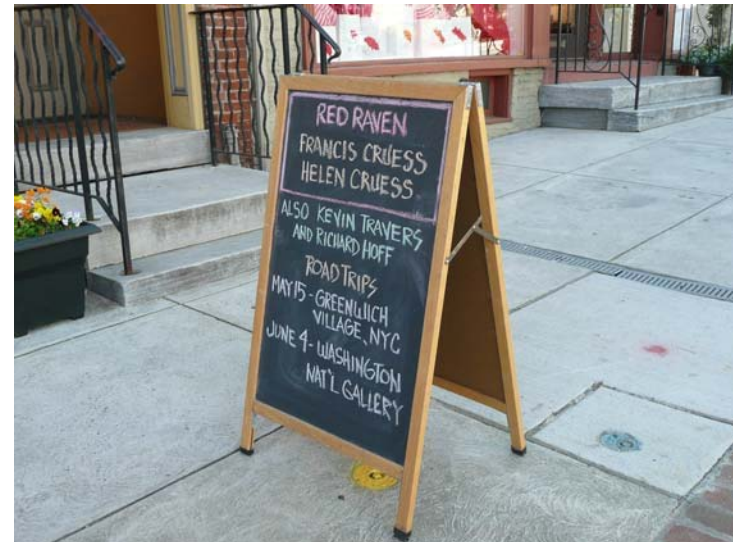 RED RAVEN
FRANCIS CRUESS
HELEN CRUESS
ALSO KEVIN TRAVERS
AND RICHARD HOFF
ROAD TRIPS
MAY 15 - GREENWICH
VILLAGE, NYC
JUNE 4 - WASHINGTON
NAT'L GALLERY